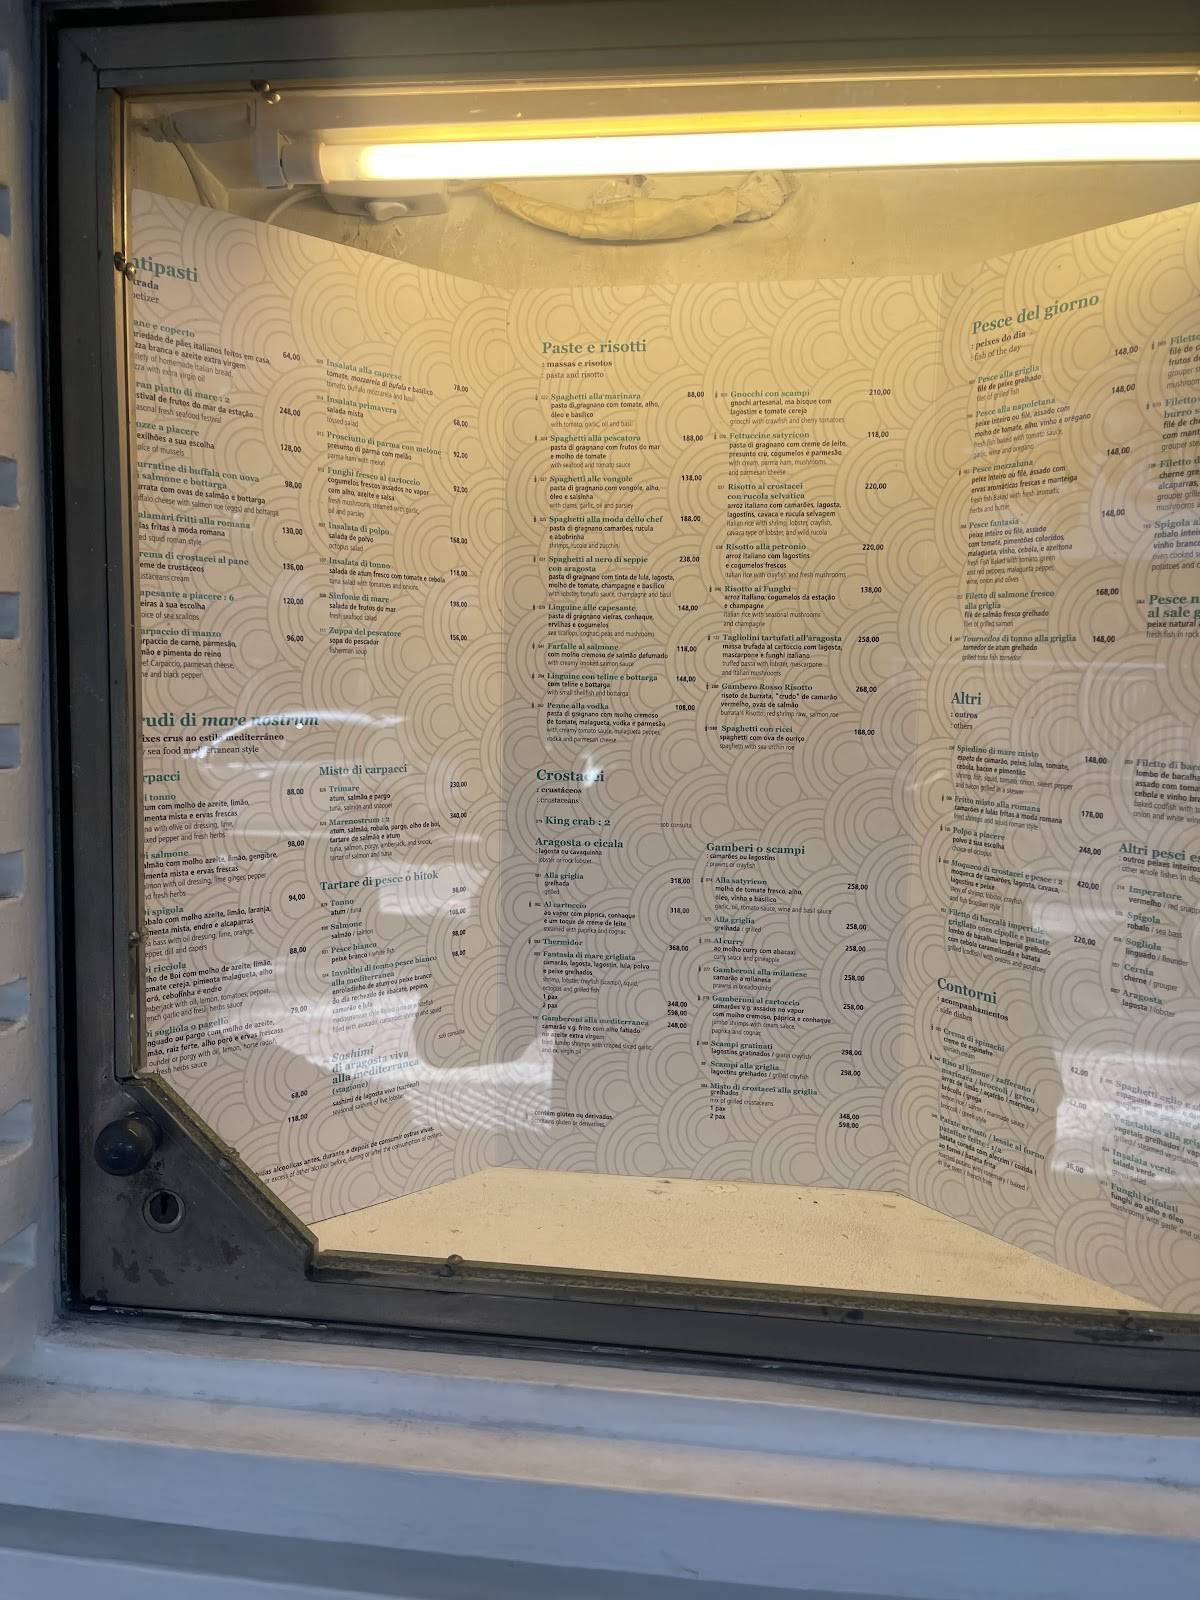 tipasti
rada
etizer
ane e coperto
riedade de pães italianos feitos em casa,
zza branca e azeite extra virgem
riety of homemade italian bread,
zza with extra virgin oil
64,00
ran piatto di mare : 2
stival de frutos do mar da estação
asonal fresh seafood festival
248,00
ozze a piacere
exilhões a sua escolha
oice of mussels
128,00
urratine di buffala con uova
salmone e bottarga
urrata com ovas de salmão e bottarga
98,00
alamari fritti alla romana
las fritas à moda romana
ed squid roman style
130,00
rema di crostacei al pane
eme de crustáceos
ustaceans cream
136,00
apesante a piacere : 6
eiras à sua escolha
oice of sea scallops
120,00
arpaccio di manzo
rpaccio de carne, parmesão,
mão e pimenta do reino
ef Carpaccio, parmesan cheese,
ne and black pepper
96,00
Insalata alla caprese
tomate, mozzarela di bufala e basílico
78,00
Insalata primavera
salada mista
tossed salad
68,00
Prosciutto di parma con melone
presunto di parma com melão
parma ham with melon
92,00
Funghi fresco al cartoccio
cogumelos frescos assados no vapor
com alho, azeite e salsa
fresh mushrooms, steamed with garlic,
oil and parsley
92,00
Insalata di polpo
salada de polvo
octopus salad
168,00
Insalata di tonno
salada de atum fresco com tomate e cebola
tuna salad with tomatoes and onions
118,00
Sinfonie di mare
salada de frutos do mar
fresh seafood salad
198,00
Zuppa del pescatore
sopa do pescador
fisherman soup
156,00
rudi di mare nostrum
ixes crus ao estilo mediterrâneo
sea food mediterranean style
rpacci
tonno
um com molho de azeite, limão,
menta mista e ervas frescas
na with olive oil dressing, lime,
ixed pepper and fresh herbs
88,00
salmone
almão com molho azeite, limão, gengibre,
imenta mista e ervas frescas
lmon with oil dressing, lime ginger pepper
nd fresh herbs
98,00
i spigola
obalo com molho azeite, limão, laranja,
menta mista, endro e alcaparras
ea bass with oil dressing, lime, orange,
epper, dill and capers
94,00
i ricciola
lho de Boi com molho de azeite, limão,
omate cereja, pimenta malagueta, alho
oró, cebolinha e endro
88,00
i sogliola o pagello
nguado ou pargo com molho de azeite,
mão, raiz forte, alho poró e ervas frescas
ounder or porgy with oil, lemon, horse radish
fresh herbs sauce
79,00
Misto di carpacci
Trimare
atum, salmão e pargo
tuna, salmon and snapper
230,00
Marenostrum : 2
atum, salmão, robalo, pargo, olho de boi,
tartare de salmão e atum
tartar of salmon and tuna
340,00
Tartare di pesce o bitok
Tonno
atum / tuna
98,00
Salmone
salmão / salmon
108,00
Pesce bianco
peixe branco / white fish
98,00
Involtini di tonno pesce bianco
alla mediterranea
enroladinho de atum ou peixe branco
do dia recheado de abacate, pepino,
camarão e lula
98,00
Sashimi
di aragosta viva
alla mediterranea
(stagione)
sashimi de lagosta viva (sazonal)
seasonal sashimi of live lobster
sob consulta
68,00
118,00
bidas alcoólicas antes, durante e depois de consumir ostras vivas.
or excess of other alcohol before, during or after the consumption of oysters.
Paste e risotti
: massas e risotos
: pasta and risotto
Spaghetti alla marinara
pasta di gragnano com tomate, alho,
óleo e basílico
with tomato, garlic, oil and basil
88,00
Spaghetti alla pescatora
pasta di gragnano com frutos do mar
e molho de tomate
with seafood and tomato sauce
188,00
Spaghetti alle vongole
pasta di gragnano com vongole, alho,
óleo e salsinha
with clams, garlic, oil and parsley
138,00
Spaghetti alla moda dello chef
pasta di gragnano com camarões, rucula
e abobrinha
shrimps, rucola and zucchini
188.00
Spaghetti al nero di seppie
con aragosta
pasta di gragnano com tinta de lula, lagosta,
molho de tomate, champagne e basílico
with lobster, tomato sauce, champagne and basil
238,00
Linguine alle capesante
pasta di gragnano vieiras, conhaque,
ervilhas e cogumelos
sea scallops, cognac, peas and mushrooms
148,00
Farfalle al salmone
com molho cremoso de salmão defumado
with creamy smoked salmon sauce
118,00
Linguine con telline e bottarga
com teline e bottarga
with small shellfish and bottarga
148,00
Penne alla vodka
pasta di gragnano com molho cremoso
de tomate, malagueta, vodka e parmesão
with creamy tomato sauce, malagueta pepper,
vodka and parmesan cheese
108,00
Gnocchi con scampi
gnochi artesanal, ma bisque com
lagostim e tomate cereja
gnocchi with crawfish and cherry tomatoes
210,00
Fettuccine satyricon
pasta di gragnano com creme de leite,
presunto cru, cogumelos e parmesão
with cream, parma ham, mushrooms,
and parmesan cheese
118,00
Risotto ai crostacei
con rucola selvatica
arroz italiano com camarões, lagosta,
lagostins, cavaca e rucula selvagem
italian rice with shrimp, lobster, crayfish,
cavaca type of lobster, and wild rucola
220,00
Risotto alla petronio
arroz italiano com lagostins
e cogumelos frescos
italian rice with crayfish and fresh mushrooms
220,00
Risotto ai Funghi
arroz italiano, cogumelos da estação
e champagne
italian rice with seasonal mushrooms
and champagne
138,00
Tagliolini tartufati all'aragosta
massa trufada al cartoccio com lagosta,
mascarpone e funghi italiano
truffled pasta with lobster, mascarpone
and italian mushrooms
258,00
Gambero Rosso Risotto
risoto de burrata, "crudo" de camarão
vermelho, ovas de salmão
burrata's Risotto, red shrimp raw, salmon roe
268,00
Spaghetti con ricci
spaghetti com ova de ouriço
spaghetti with sea urchin roe
188,00
Crostacei
: crustáceos
: crustaceans
King crab : 2
sob consulta
Aragosta o cicala
: lagosta ou cavaquinha
: lobster or rock lobster
Alla griglia
grelhada
grilled
318,00
Al cartoccio
ao vapor com páprica, conhaque
e um toque de creme de leite
steamed with paprica and cognac
318,00
Thermidor
368,00
Fantasia di mare grigliata
camarão, lagosta, lagostim, lula, polvo
e peixe grelhados
shrimp, lobster, crayfish (scampi), squid,
octopus and grilled fish
1 pax
348,00
2 pax
598,00
Gamberoni alla mediterranea
camarão v.g. frito com alho fatiado
no azeite extra virgem
fried jumbo shrimps with crisped sliced garlic
and ex. virgin oil
248,00
: contém glúten ou derivados.
: contains gluten or derivatives.
Gamberi o scampi
: camarões ou lagostins
: prawns or crayfish
Alla satyricon
molho de tomate fresco, alho,
óleo, vinho e basílico
garlic, oil, tomato sauce, wine and basil sauce
258,00
Alla griglia
grelhada / grilled
258,00
Al curry
ao molho curry com abacaxi
curry sauce and pineapple
258,00
Gamberoni alla milanese
camarão a milanesa
prawns in breadcrumbs
258,00
Gamberoni al cartoccio
camarões v.g. assados no vapor
com molho cremoso, páprica e conhaque
jumbo shrimps with cream sauce,
paprika and cognac
258,00
Scampi gratinati
lagostins gratinados / gratin crayfish
298,00
Scampi alla griglia
lagostins grelhados / grilled crayfish
298,00
Misto di crostacei alla griglia
grelhados
mix of grilled crustaceans
1 pax
348,00
2 pax
598,00
Pesce del giorno
: peixes do dia
: fish of the day
Pesce alla griglia
filé de peixe grelhado
filet of grilled fish
148,00
Pesce alla napoletana
peixe inteiro ou filé, assado com
molho de tomate, alho, vinho e orégano
fresh fish baked with tomato sauce,
garlic, wine and oregano
148,00
Pesce mezzaluna
peixe inteiro ou filé, assado com
ervas aromáticas frescas e manteiga
fresh fish Baked with fresh aromatic
herbs and butter
148,00
Pesce fantasia
peixe inteiro ou filé, assado
com tomate, pimentões coloridos,
malagueta, vinho, cebola, e azeitona
fresh fish Baked with tomato, green
and red peppers, malagueta pepper,
wine, onion and olives
148,00
Filetto di salmone fresco
alla griglia
filé de salmão fresco grelhado
filet of grilled salmon
168,00
Tournedos di tonno alla griglia
tornedor de atum grelhado
grilled tuna fish tornedor
148,00
Altri
: outros
: others
Spiedino di mare misto
espeto de camarão, peixe, lulas, tomate,
cebola, bacon e pimentão
shrimp, fish, squid, tomato, onion, sweet pepper
and bacon grilled in a skewer
148,00
Fritto misto alla romana
camarões e lulas fritas à moda romana
fried shrimps and squid roman style
178,00
Polpo a piacere
polvo à sua escolha
choice of octopus
248,00
Moqueca di crostacei e pesce : 2
moqueca de camarões, lagosta, cavaca,
lagostins e peixe
stew of shrimp, lobster, crayfish
and fish Brazilian style
420,00
Filetto di baccalà imperiale
grigliato con cipolle e patate
lombo de bacalhau imperial grelhado
com cebola caramelizada e batata
grilled (codfish) with onions and potatoes
220,00
Contorni
: acompanhamentos
: side dishes
Crema di spinaci
creme de espinafre
spinach cream
42,00
Riso al limone / zafferano /
marinara / broccoli / greco
arroz de limão / açafrão / marinara /
brócolis / grega
lemon rice / safron / marinade sauce /
broccoli / greek style
Patate arrosto / lessie al forno
patatine fritte : 1/2
batata corada com alecrim / cozida /
ao forno / batata frita
roasted potato with rosemary / baked /
in the oven / french fries
36,00
Filetto
filé de c
frutos d
grouper
mushroom
Filetto
burro
filé de ch
com mant
grouper
Filetto d
cherne gre
alcaparras,
grouper grill
mushrooms
Spigola a
robalo intei
vinho branc
oven cooked s
potatoes and
Pesce n
al sale g
peixe natural
fresh fish in rock
Filetto di bac
lombo de bacal
assado com toma
cebola e vinho bra
baked codfish with
onion and white win
Altri pesci e
: outros peixes inteiros
: other whole fishes
Imperatore
vermelho / red snapp
Spigola
robalo / sea bass
Sogliola
linguado / flounder
Cernia
cherne / grouper
Aragosta
lagosta / lobster
Spaghetti aglio e
Vegetables alla gri
vegetais grelhados / vap
grilled / steamed vegetab
Insalata verde
salada verde
Funghi trifolati
funghi ao alho e óleo
mushrooms with garlic and